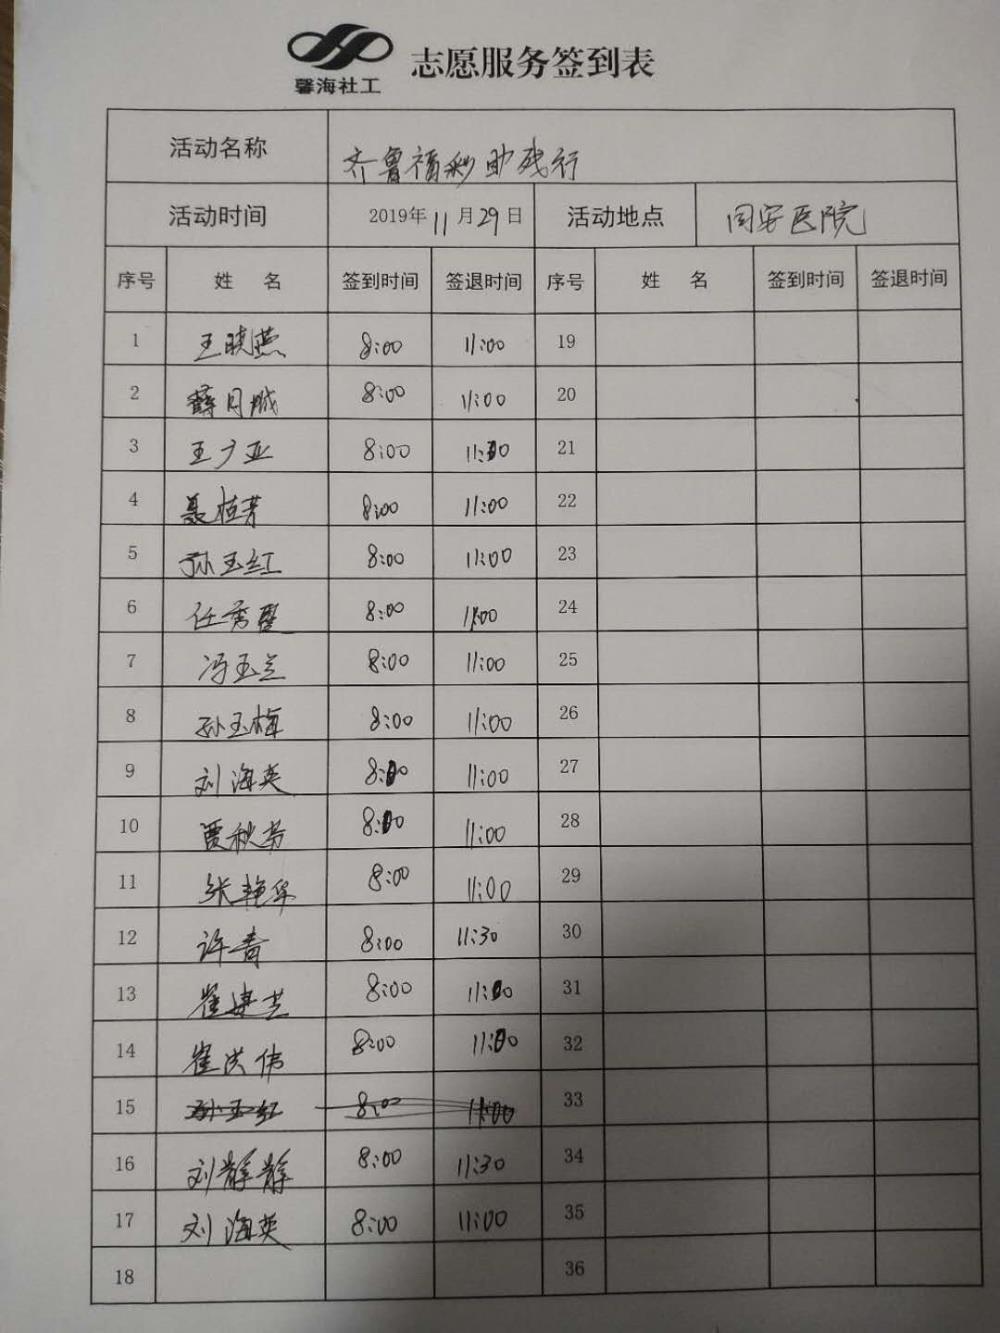 馨海社工
志愿服务签到表
活动名称 齐鲁福彩助残行
活动时间 2019年11月29日 活动地点 同安医院
序号 姓名 签到时间 签退时间 序号 姓名 签到时间 签退时间
1 王晓燕 8:00 11:00 19
2 薛月城 8:00 11:00 20
3 王少亚 8:00 11:30 21
4 聂桂芳 8:00 11:00 22
5 孙玉红 8:00 11:00 23
6 任秀 8:00 11:00 24
7 冯玉兰 8:00 11:00 25
8 孙玉梅 8:00 11:00 26
9 刘海英 8:00 11:00 27
10 贾秋芳 8:00 11:00 28
11 张艳华 8:00 11:00 29
12 许青 8:00 11:30 30
13 崔 芝 8:00 11:00 31
14 崔洪伟 8:00 11:00 32
15 孙玉红 8:00 11:00 33
16 刘静静 8:00 11:30 34
17 刘海英 8:00 11:00 35
18 36